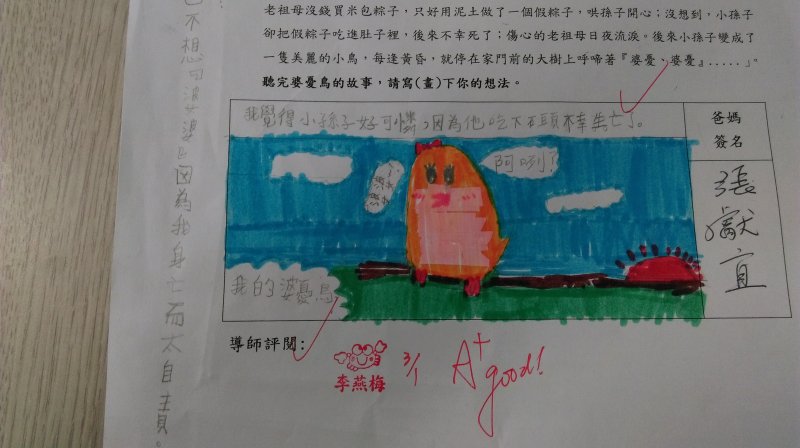 老祖母沒錢買米包粽子，只好用泥土做了一個假粽子，哄孫子開心；沒想到，小孫子
卻把假粽子吃進肚子裡，後來不幸死了；傷心的老祖母日夜流淚。後來小孫子變成了
一隻美麗的小鳥，每逢黃昏，就停在家門前的大樹上呼啼著『婆憂、婆憂』.....」。
聽完婆憂鳥的故事，請寫(畫)下你的想法。
我覺得小孫子好可憐，因為他吃下
不幸
亡了。
爸媽
簽名
婆婆
阿咧!
我的婆憂鳥
張
宜
導師評閱:
李燕梅
3/1
A+
good!
不想
婆婆因為我身亡而太自責。